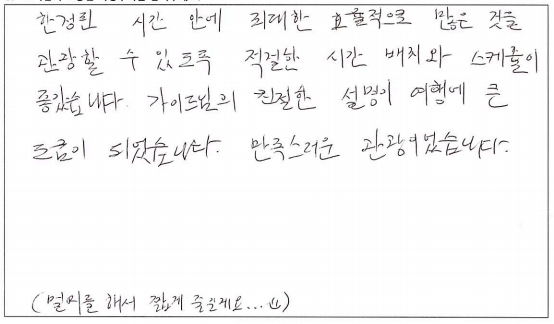 한정된 시간 안에 최대한 효율적으로 많은 것을
관광할 수 있도록 적절한 시간 배치와 스케줄이
좋았습니다. 가이드님의 친절한 설명이 여행에 큰
도움이 되었습니다. 만족스러운 관광이었습니다.
(멀미를 해서 짧게 줄일게요...☺)